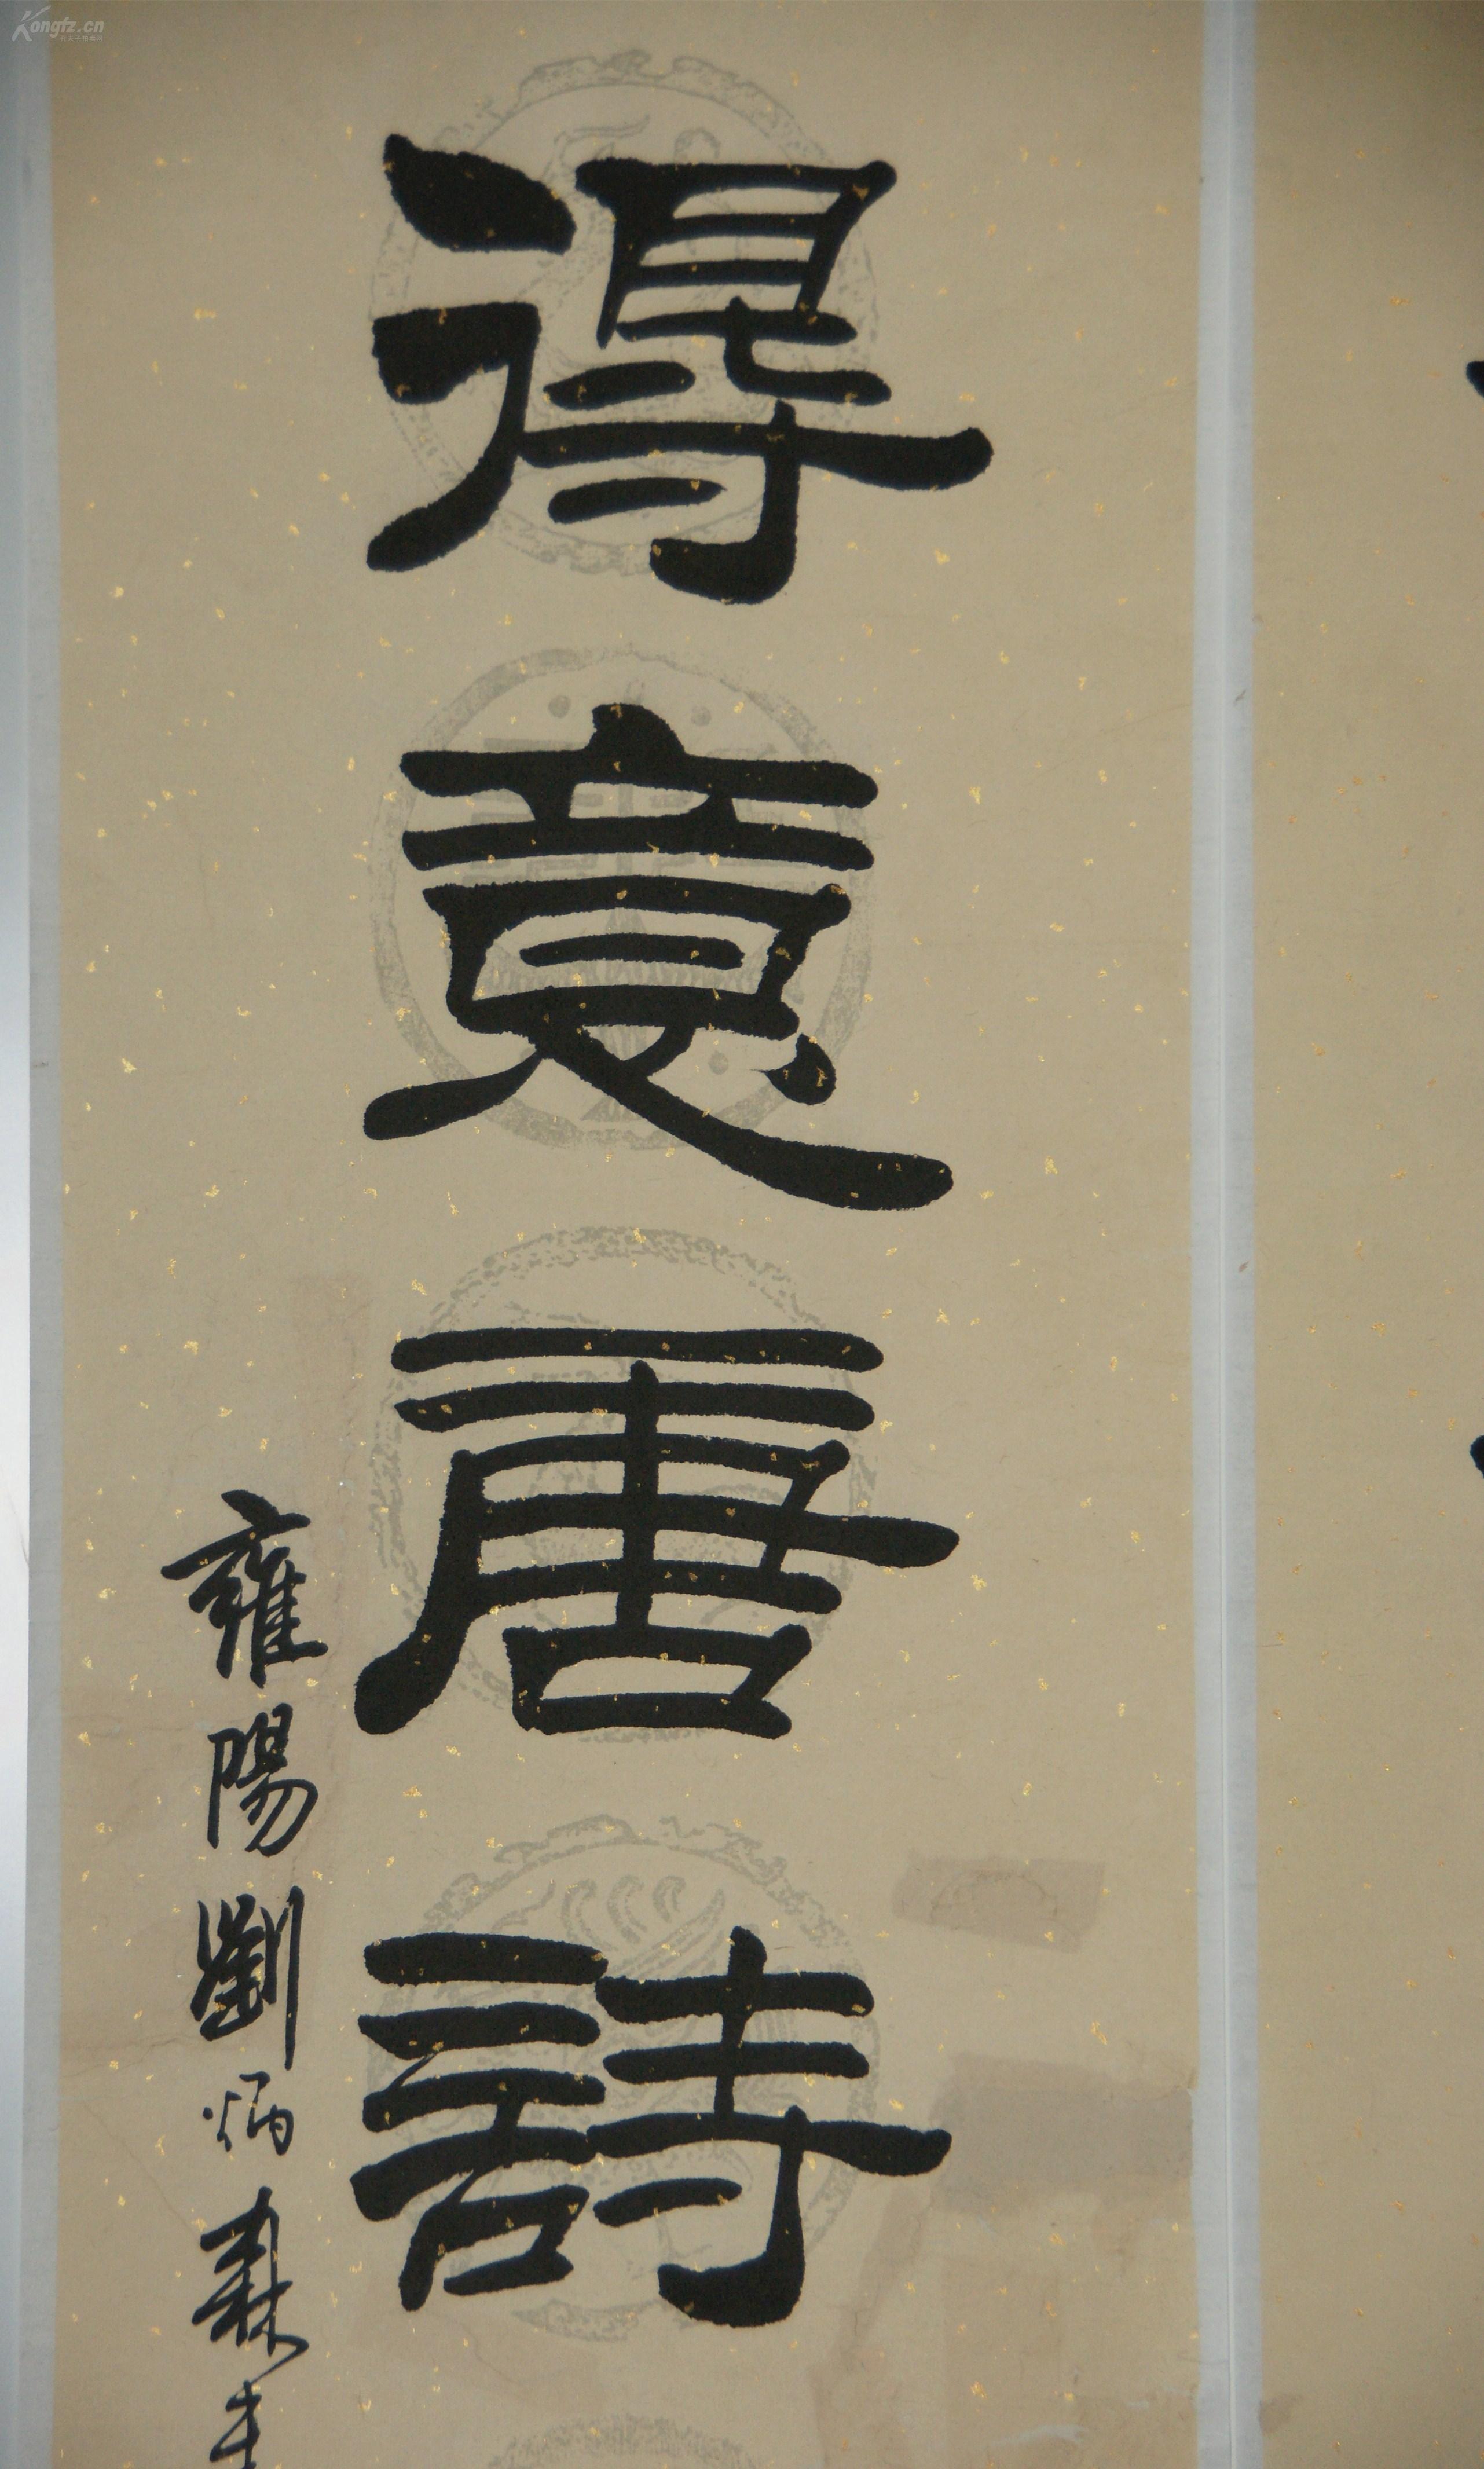 得意唐詩
雍陽劉炳森書
Kongfz.cn